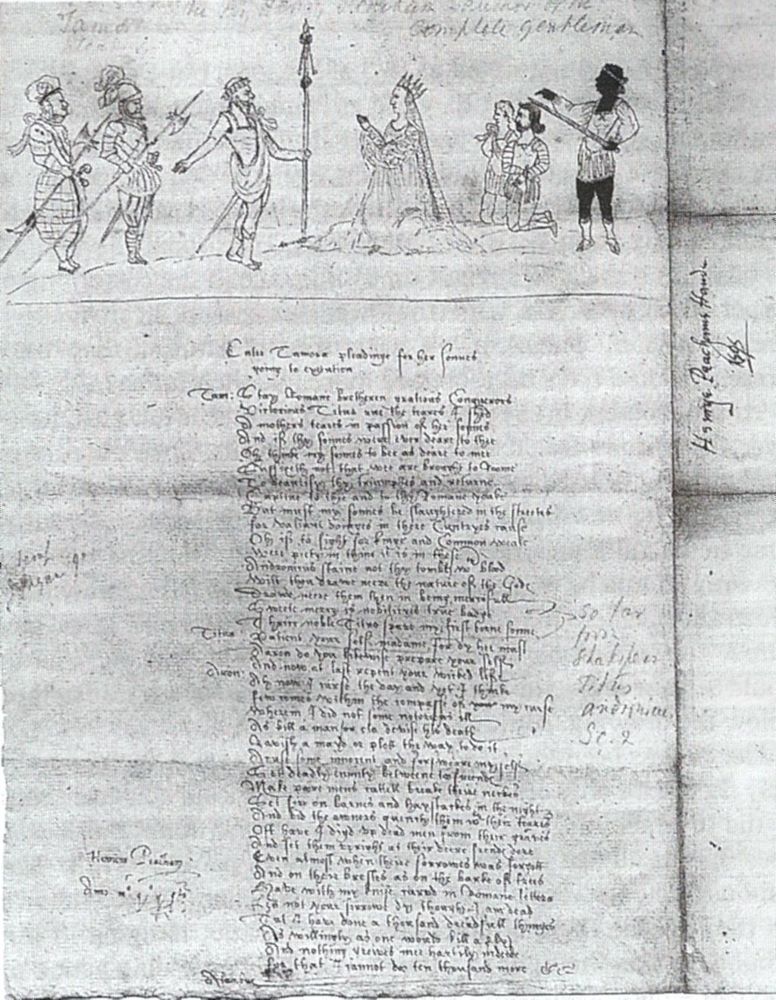 Henry Peacham Author of the
Complete gentleman
Enter Tamora pleadinge for her sonnes
going to execution
Tam: Stay Romane bretheren gratious Conquerors
Victorious Titus rue the teares I shed
A mothers teares in passion of her sonnes
And if thy sonnes were ever deare to thee
Oh thinke my sonnes to bee as deare to mee
Sufficeth not that wee are brought to Roome
To beautify thy triumphes and returne
Captive to thee and to thy Romane yoake
But must my sonnes be slaughtered in the streetes
for valiant doinges in there Cuntryes cause
Oh if to fight for kinge and Common weale
Were piety in thine it is in these
Andronicus staine not thy tombe wth blood
Wilt thou drawe neere the nature of the Godes
Drawe neere them then in being mercifull
Sweete mercy is nobilityes true badge
Thrice noble Titus spare my first borne sonne
Titus: Patient your self madame for dy hee must
Aaron do you likewise prepare your self
And now at last repent your wicked life
Aron: Ah now I curse the day and yet I thinke
few comes within the compasse of my curse
Wherein I did not some notorious ill
As kill a man or els devise his death
Ravish a mayd or plott the way to do it
Acuse some innocent and forsweare myself
Set deadly enmity betweene to freendes
Make poore mens cattell breake theire neckes
Set fire on barnes and haystackes in the night
And bid the owners quench them wth their teares
Oft have I digd up dead men from their graves
And set them upright at their deere frendes dore
Even almost when theire sorrowes was forgott
And on their brestes as on the barke of trees
Have with my knife carved in Romane letters
Lett not your sorrowe dy though I am dead
Tut I have done a thousand dreadfull thinges
As willingly as one would kill a fly
And nothing greives mee hartily indeede
for that I cannot doo ten thousand more &c
so far
from
Shakspear
Titus
Andronicus
Sc. 2
Henricus Peacham
Henrye Peachams Hande
1595